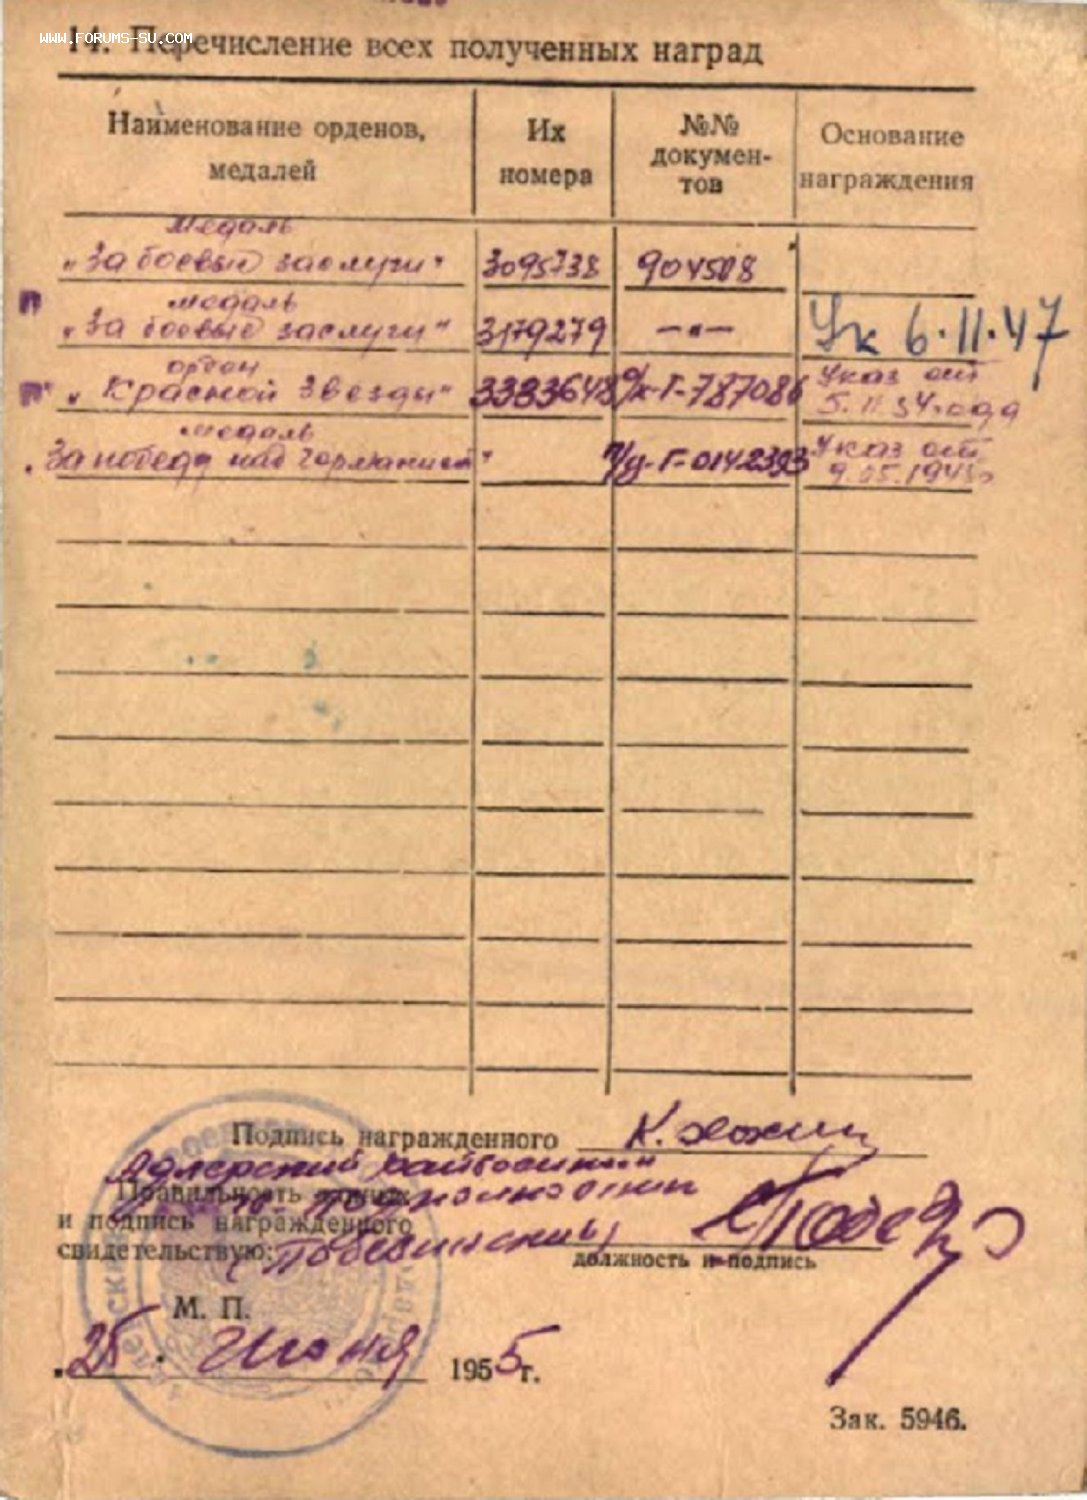 WWW.FORUMS-SU.COM
14. Перечисление всех полученных наград
Наименование орденов, медалей
Их номера
№№ документов
Основание награждения
медаль
„За боевые заслуги" 3095738 904508
медаль
„За боевые заслуги" 3179279 —"— Ук 6.11.47
орден
„Красной Звезды" 3383648 о/к-Г-787086 Указ от
5.11.54 года
медаль
„За победу над Германией" Г-0142393 Указ от
9.05.1945
Подпись награжденного К.
Адлерский
Правильность данных
и подпись награжденного
свидетельствую:
должность и подпись
М. П.
„25" Июня 1955 г.
Зак. 5946.